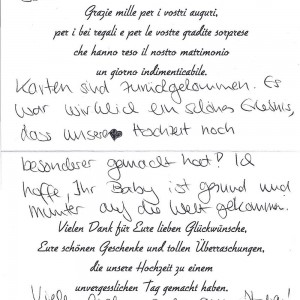 Grazie mille per i vostri auguri,
per i bei regali e per le vostre gradite sorprese
che hanno reso il nostro matrimonio
un giorno indimenticabile.
Karten sind zurückgekommen. Es
war wirklich ein schönes Erlebnis,
dass unsere Hochzeit noch
besonderer gemacht hat! Ich
hoffe, Ihr Baby ist gesund und
munter auf die Welt gekommen.
Vielen Dank für Eure lieben Glückwünsche,
Eure schönen Geschenke und tollen Überraschungen,
die unsere Hochzeit zu einem
unvergesslichen Tag gemacht haben.
Viele